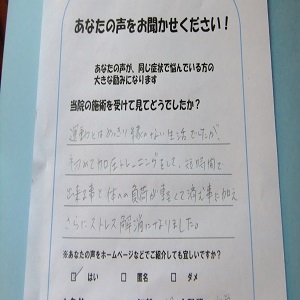 あなたの声をお聞かせください!
あなたの声が、同じ症状で悩んでいる方の
大きな励みになります
当院の施術を受けて見てどうでしたか?
運動とはめっきり縁のない生活でしたが
初めて加圧トレーニングをして、短時間で
出来る事と体への負荷が軽くて済む事に加え
さらにストレス解消になりました。
※あなたの声をホームページなどでご紹介しても宜しいですか?
はい 匿名 ダメ